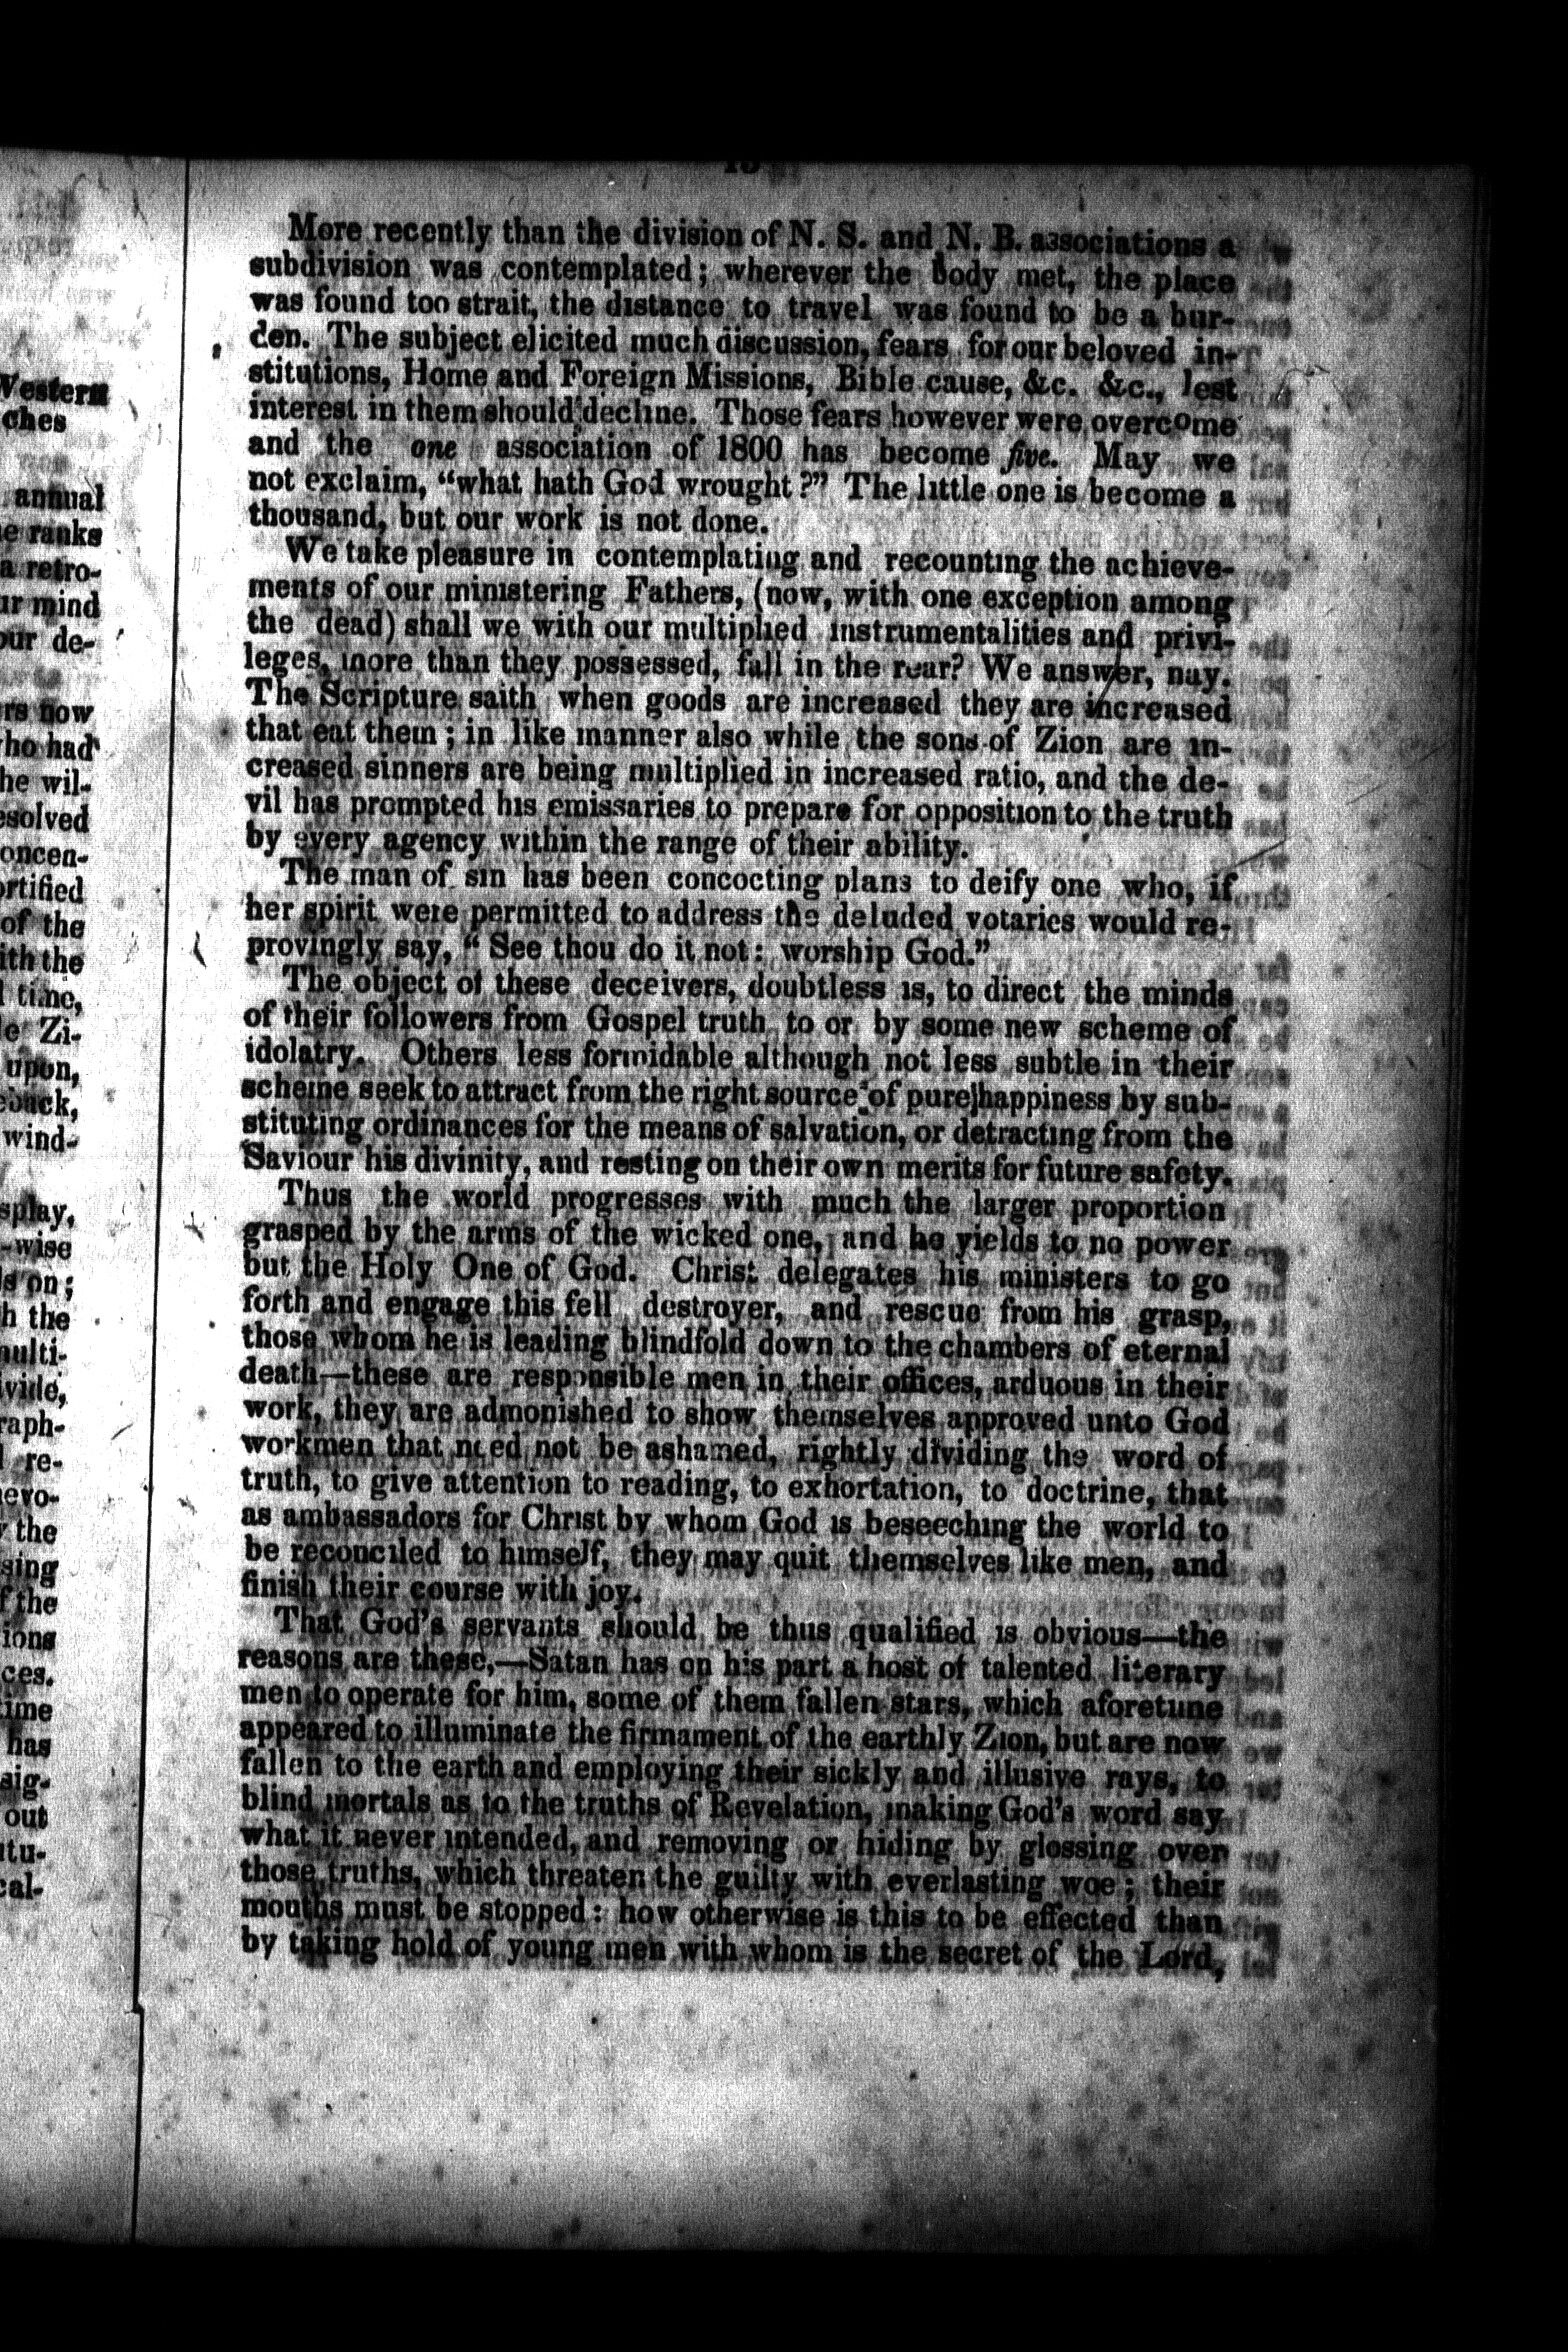 More recently than the division of N. S. and N. B. associations a
subdivision was contemplated; wherever the body met, the place
was found too strait, the distance to travel was found to be a bur-
den. The subject elicited much discussion, fears for our beloved in-
stitutions, Home and Foreign Missions, Bible cause, &c. &c., lest
interest in them should decline. Those fears however were overcome
and the one association of 1800 has become five. May we
not exclaim, “what hath God wrought?” The little one is become a
thousand, but our work is not done.
We take pleasure in contemplating and recounting the achieve-
ments of our ministering Fathers, (now, with one exception among
the dead) shall we with our multiplied instrumentalities and privi-
leges, more than they possessed, fall in the rear? We answer, nay.
The Scripture saith when goods are increased they are increased
that eat them; in like manner also while the sons of Zion are in-
creased sinners are being multiplied in increased ratio, and the de-
vil has prompted his emissaries to prepare for opposition to the truth
by every agency within the range of their ability.
The man of sin has been concocting plans to deify one who, if
her spirit were permitted to address the deluded votaries would re-
provingly say, “See thou do it not: worship God.”
The object of these deceivers, doubtless is, to direct the minds
of their followers from Gospel truth to or by some new scheme of
idolatry. Others less formidable although not less subtle in their
scheme seek to attract from the right source of pure happiness by sub-
stituting ordinances for the means of salvation, or detracting from the
Saviour his divinity, and resting on their own merits for future safety.
Thus the world progresses with much the larger proportion
grasped by the arms of the wicked one, and he yields to no power
but the Holy One of God. Christ delegates his ministers to go
forth and engage this fell destroyer, and rescue from his grasp,
those whom he is leading blindfold down to the chambers of eternal
death—these are responsible men in their offices, arduous in their
work, they are admonished to show themselves approved unto God
workmen that need not be ashamed, rightly dividing the word of
truth, to give attention to reading, to exhortation, to doctrine, that
as ambassadors for Christ by whom God is beseeching the world to
be reconciled to himself, they may quit themselves like men, and
finish their course with joy.
That God's servants should be thus qualified is obvious—the
reasons are these,—Satan has on his part a host of talented literary
men to operate for him, some of them fallen stars, which aforetime
appeared to illuminate the firmament of the earthly Zion, but are now
fallen to the earth and employing their sickly and illusive rays, to
blind mortals as to the truths of Revelation, making God's word say
what it never intended, and removing or hiding by glossing over
those truths, which threaten the guilty with everlasting woe; their
mouths must be stopped: how otherwise is this to be effected than
by taking hold of young men with whom is the secret of the Lord,